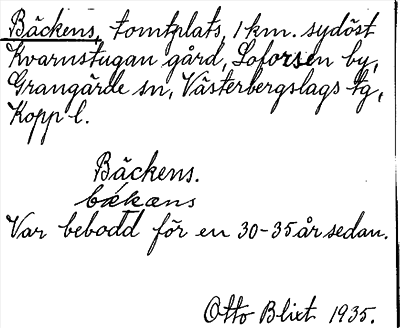 Bäckens, tomtplats, 1 km. sydöst
Kvarnstugan gård, Loforsen by,
Grangärde sn, Västerbergslags tg,
Kopp l.
Bäckens.
bækæns
Var bebodd för en 30-35 år sedan.
Otto Blixt 1935.